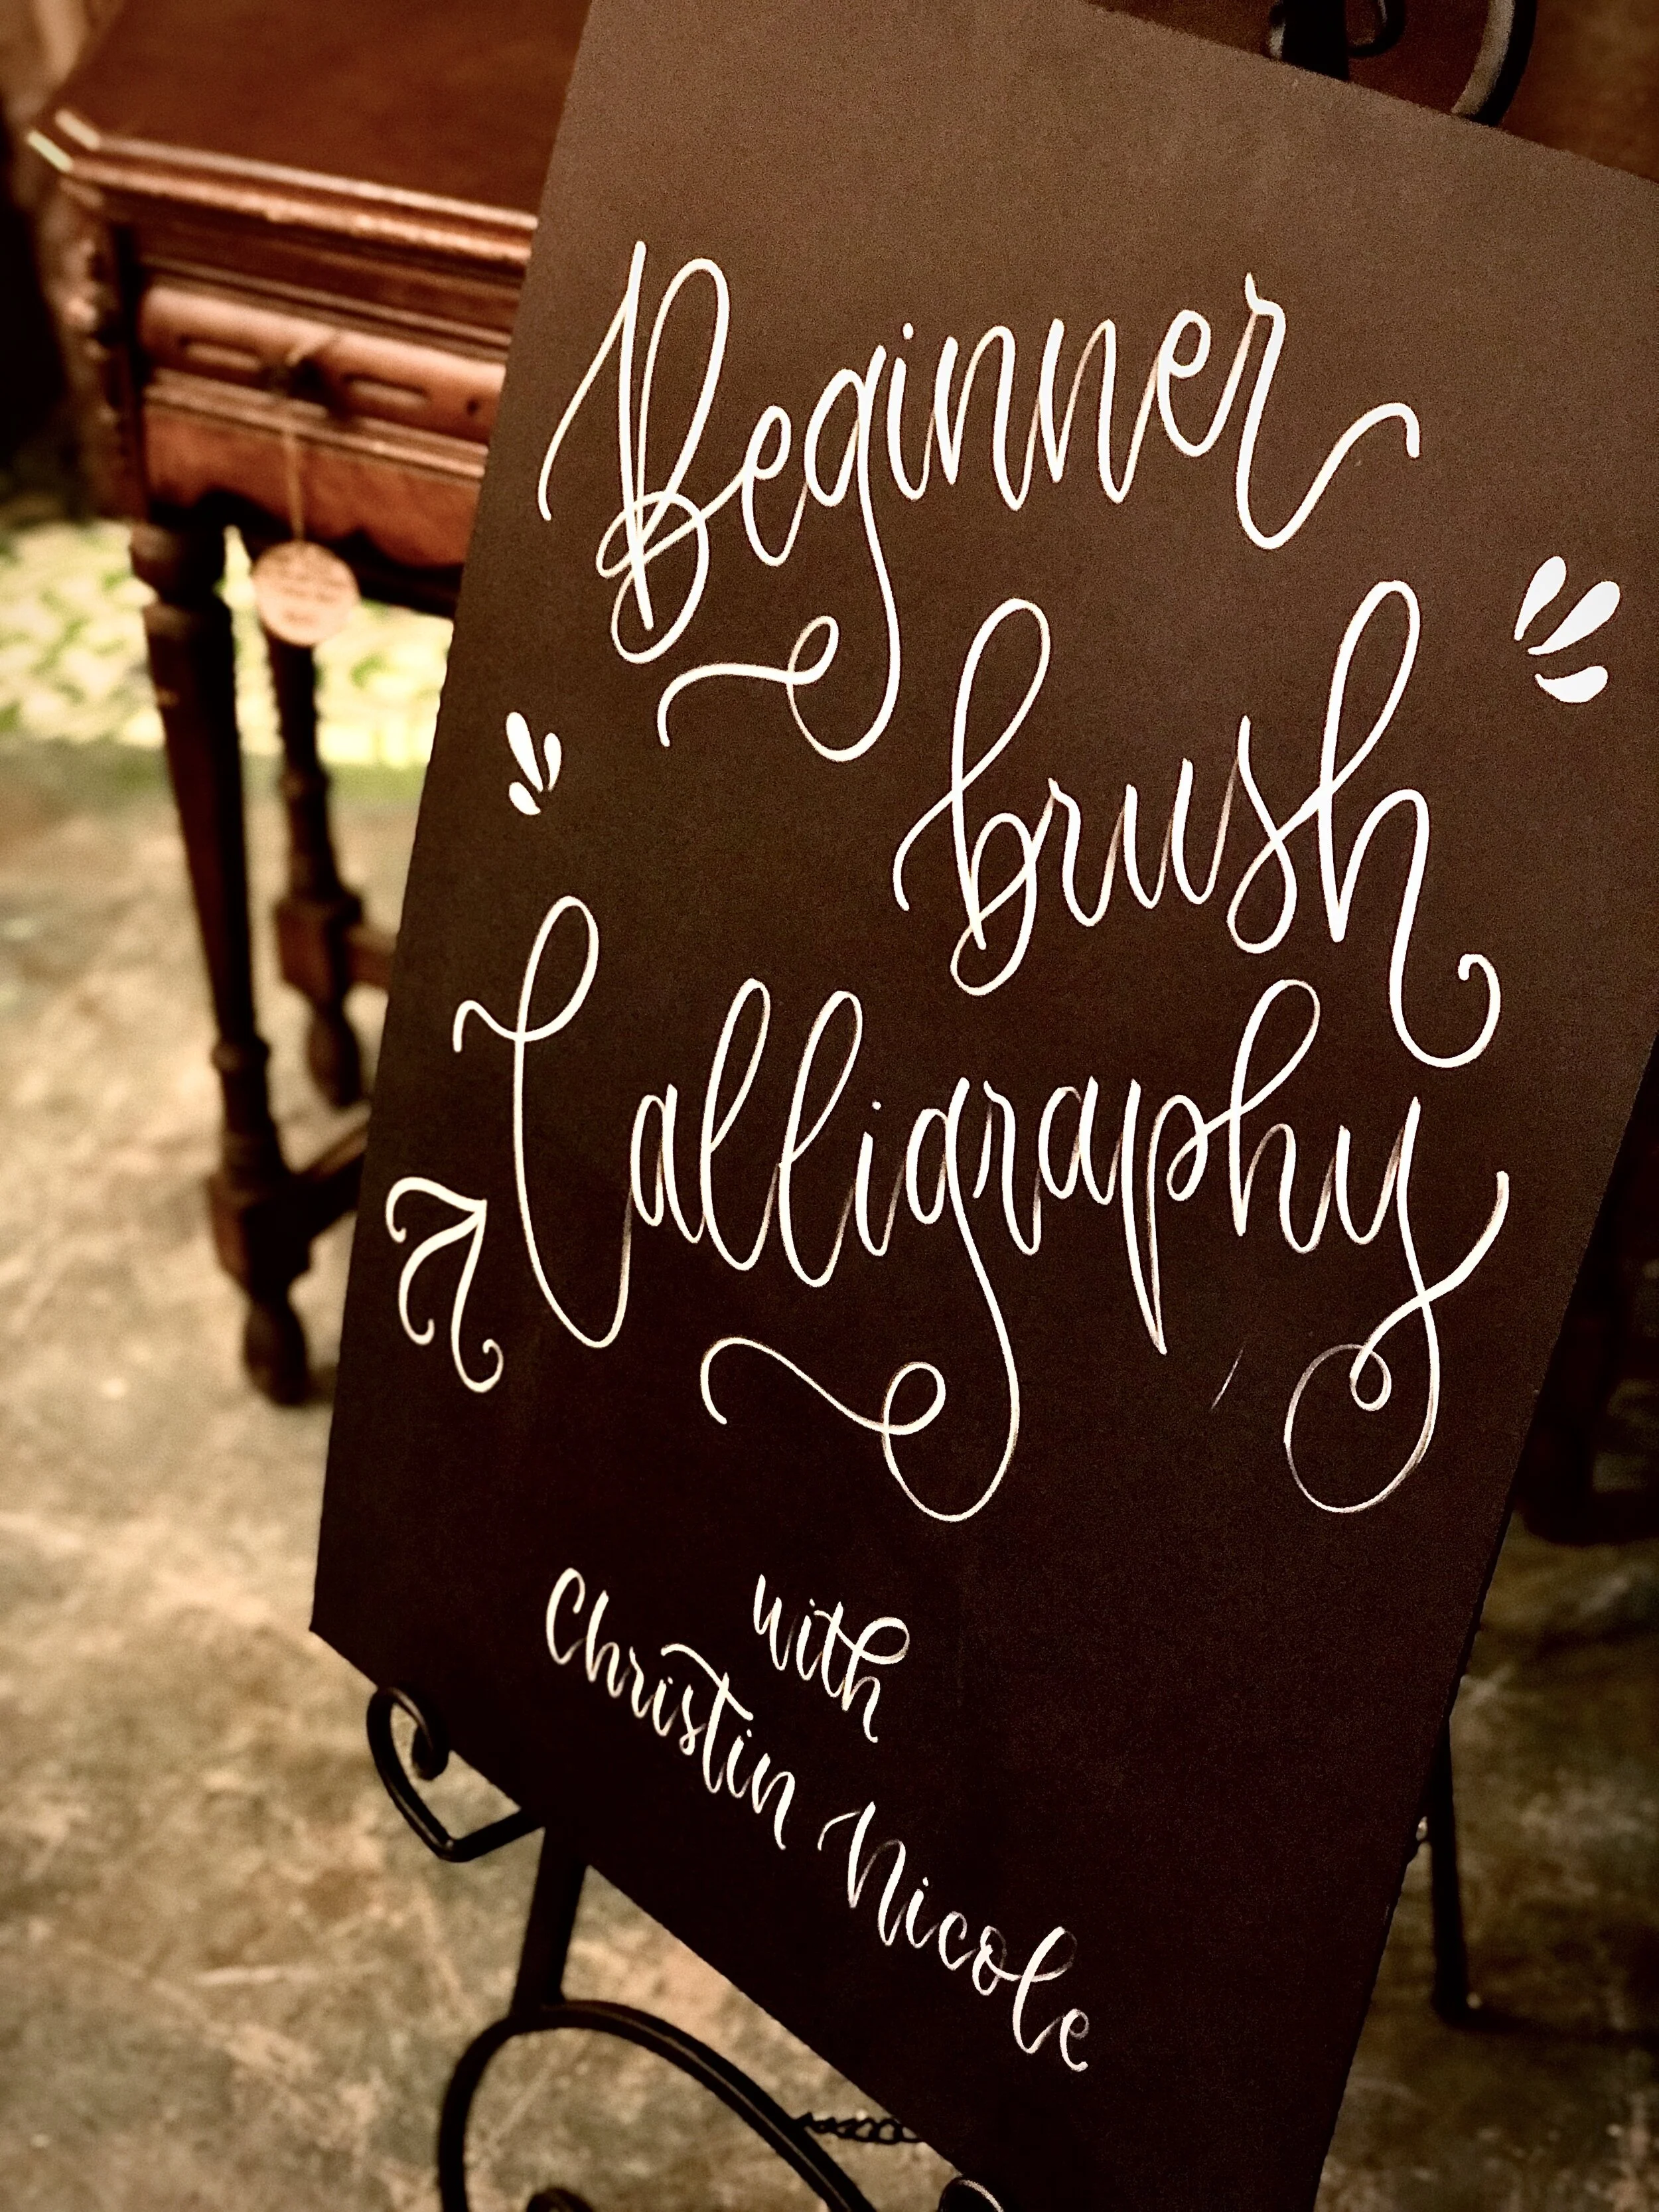 Beginner
brush
Calligraphy
with
Christin Nicole